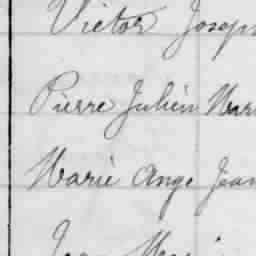 Victor Joseph
Pierre Julien Mari
Marie Ange Jean
Jean Mari